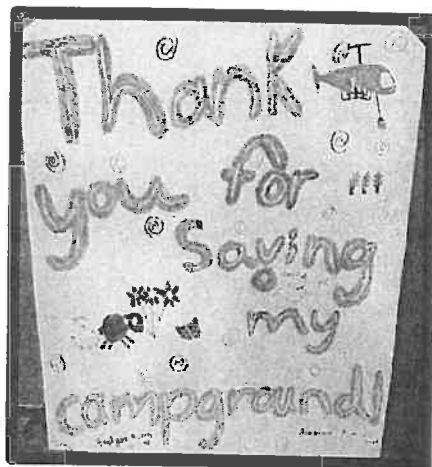 Thank
you for
saving
my
campground!